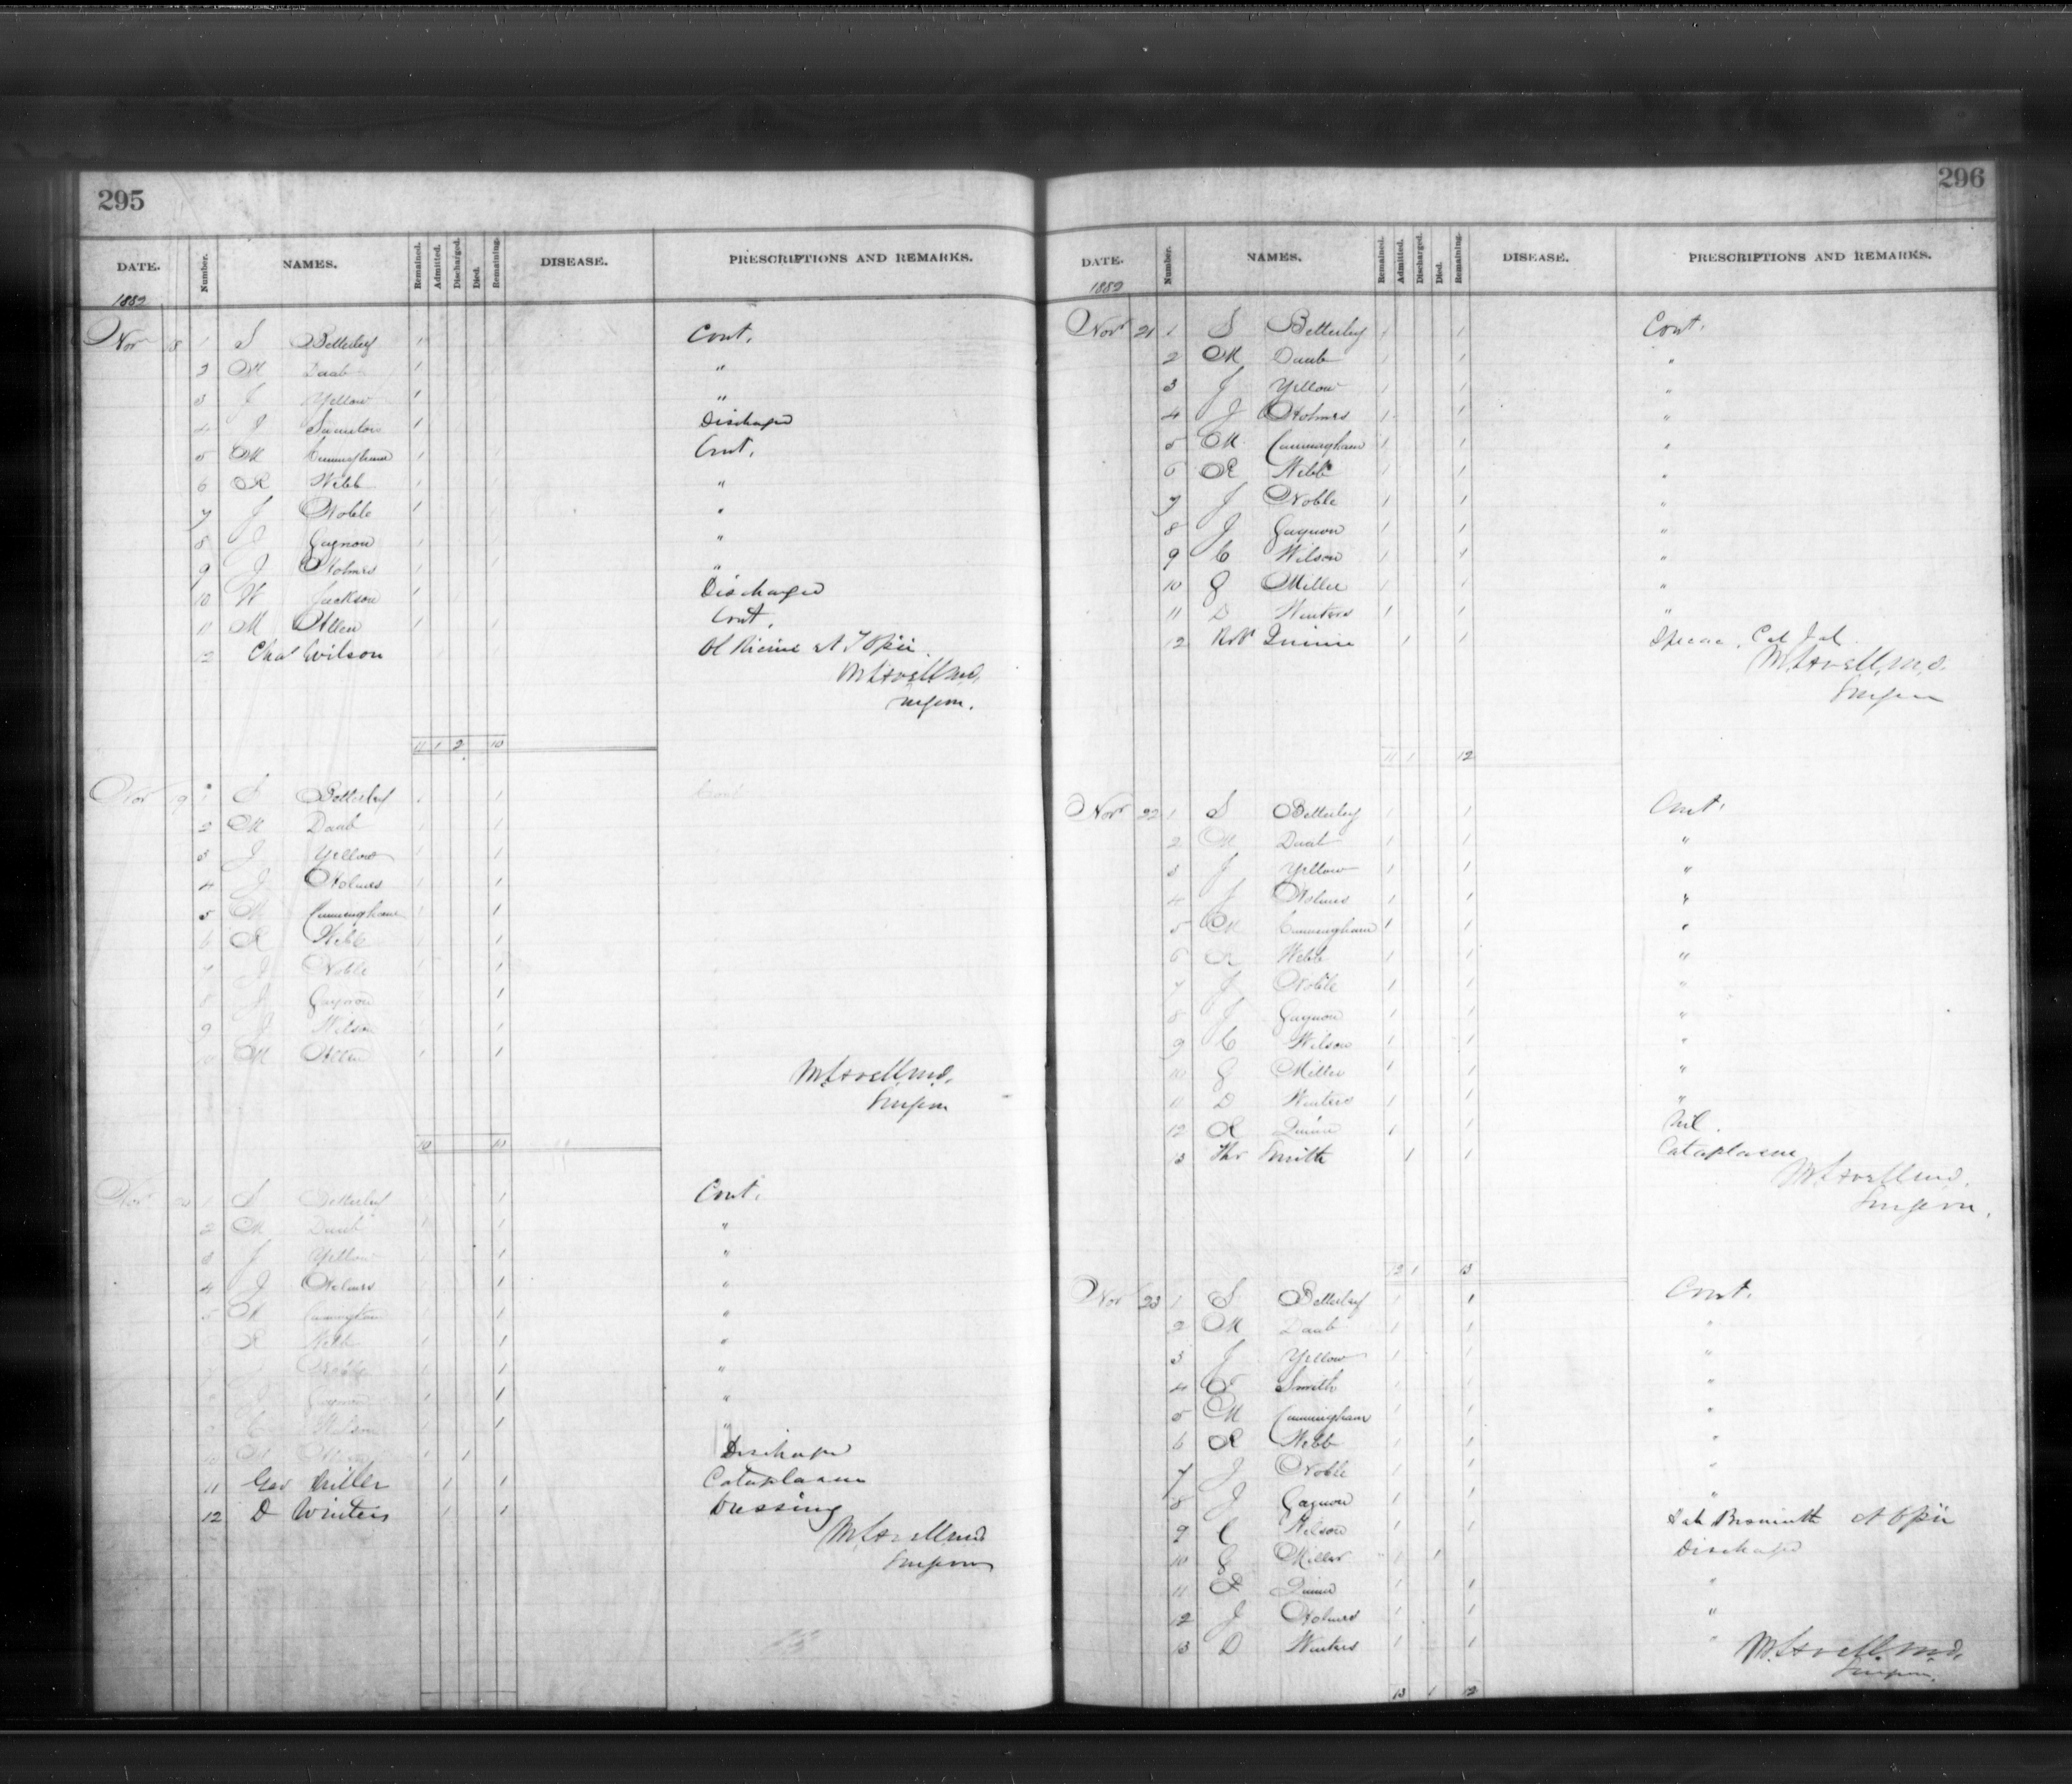 295
DATE. Number. NAMES. Remained. Admitted. Discharged. Died. Remaining. DISEASE. PRESCRIPTIONS AND REMARKS.
1882
Nov 18 1 S Betterley 1 Cont.
2 M Daub 1 "
3 J Yellow 1 "
4 J 1 Discharged
5 M Cunningham 1 Cont.
6 R Webb 1 "
7 J Noble 1 "
8 J Gagnon 1 "
9 J Holmes 1 "
10 W Jackson 1 Discharged
11 M Allen 1 Cont.
12 Chas Wilson Ol Ricini & T Opii.
Surgeon.
11 1 2 10
Nov 19 1 S Betterley 1 1 Cont
2 M Daub 1 1
3 J Yellow 1 1
4 J Holmes 1 1
5 M Cunningham 1 1
6 R Webb 1 1
7 J Noble 1 1
8 J Gagnon 1 1
9 J Wilson 1 1
10 M Allen 1 1
Surgeon
10 10
Nov 20 1 S Betterley 1 Cont.
2 M Daub 1 1 "
3 J Yellow 1 1 "
4 J Holmes 1 1 "
5 M Cunningham 1 1 "
6 R Webb 1 1 "
7 J Noble 1 1 "
8 J Gagnon 1 1 "
9 C Wilson 1 1 "
10 M 1 1 Discharged
11 Geo Miller 1 1 Cataplasm
12 D Winters 1 1 Dressing
Surgeon
296
DATE. Number. NAMES. Remained. Admitted. Discharged. Died. Remaining. DISEASE. PRESCRIPTIONS AND REMARKS.
1882
Nov 21 1 S Betterley 1 1 Cont.
2 M Daub 1 1 "
3 J Yellow 1 1 "
4 J Holmes 1 1 "
5 M Cunningham 1 1 "
6 R Webb 1 1 "
7 J Noble 1 1 "
8 J Gagnon 1 1 "
9 C Wilson 1 1 "
10 G Miller 1 1 "
11 D Winters 1 1 "
12 Robt Quinn 1 1 Ipecac. Cal Jal.
Surgeon
11 1 12
Nov 22 1 S Betterley 1 1 Cont.
2 M Daub 1 1 "
3 J Yellow 1 1 "
4 J Holmes 1 1 "
5 M Cunningham 1 1 "
6 R Webb 1 1 "
7 J Noble 1 1 "
8 J Gagnon 1 1 "
9 C Wilson 1 1 "
10 G Miller 1 1 "
11 D Winters 1 1 "
12 R Quinn 1 1 Nil.
13 Thos Smith 1 1 Cataplasm
Surgeon.
12 1 13
Nov 23 1 S Betterley 1 1 Cont.
2 M Daub 1 1 "
3 J Yellow 1 1 "
4 T Smith 1 1 "
5 M Cunningham 1 1 "
6 R Webb 1 1 "
7 J Noble 1 1 "
8 J Gagnon 1 1 "
9 C Wilson 1 1 Sub Bismuth & Opii
10 G Miller 1 1 Discharged
11 R Quinn 1 1 "
12 J Holmes 1 1 "
13 D Winters 1 1 "
Surgeon.
13 1 12